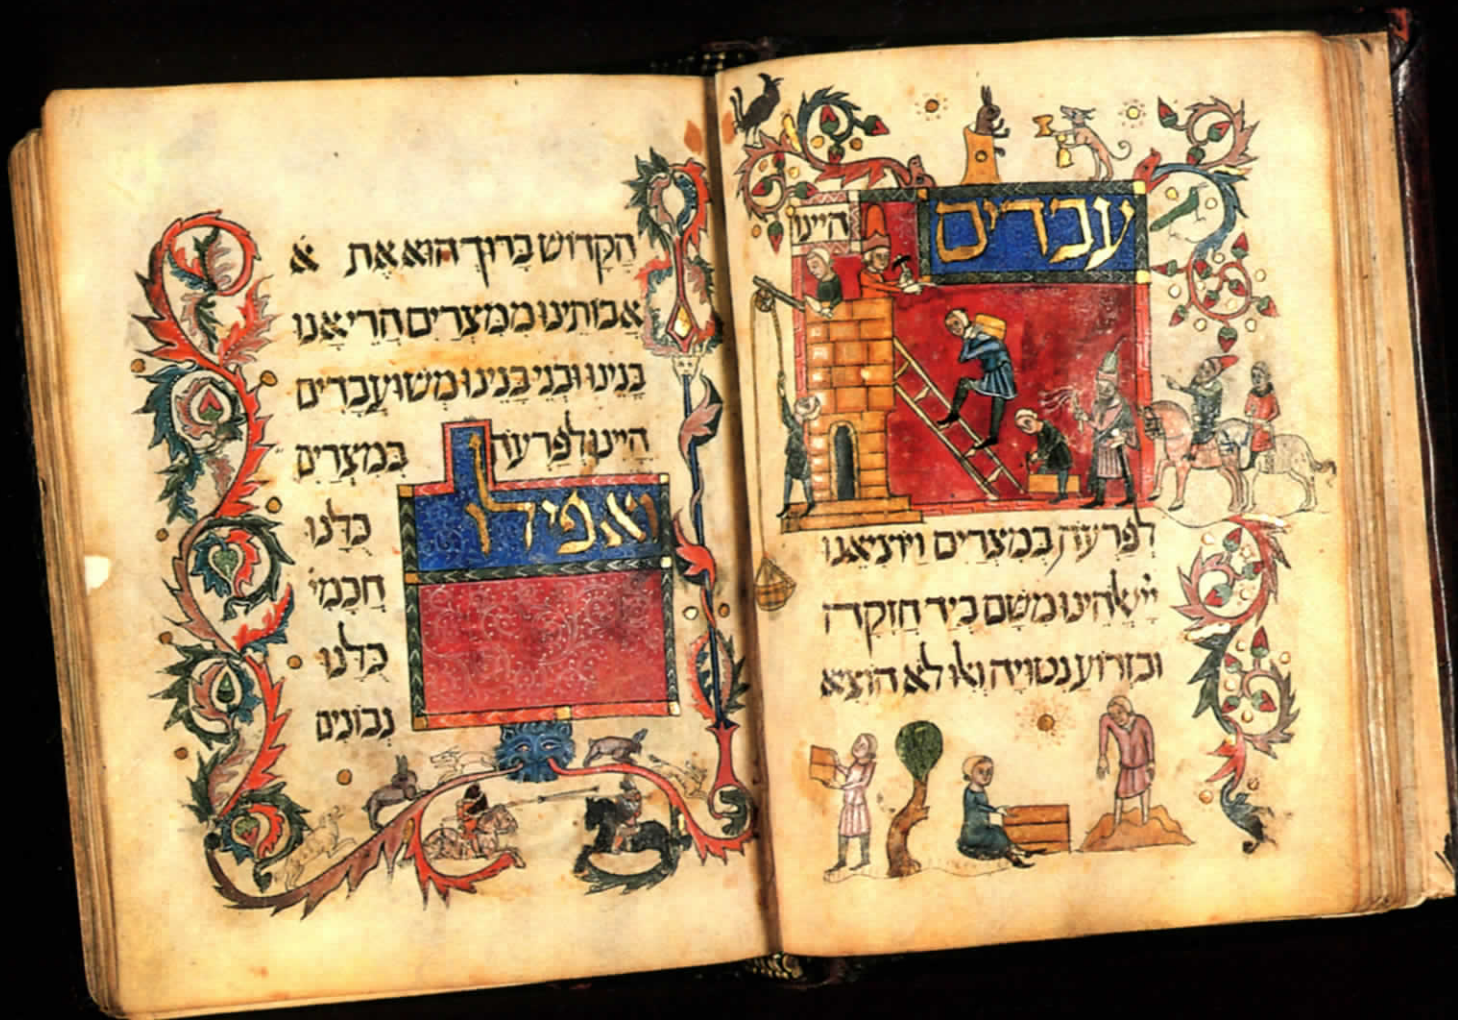 עבדים
היינו
לפרעה במצרים ויוציאנו
יי אלהינו משם ביד חזקה
ובזרוע נטויה ואלו לא הוציא
הקדוש ברוך הוא את א
אבותינו ממצרים הרי אנו
בנינו ובני בנינו משועבדים
היינו לפרעה במצרים
ואפילו
כלנו
חכמי
כלנו
נבונים